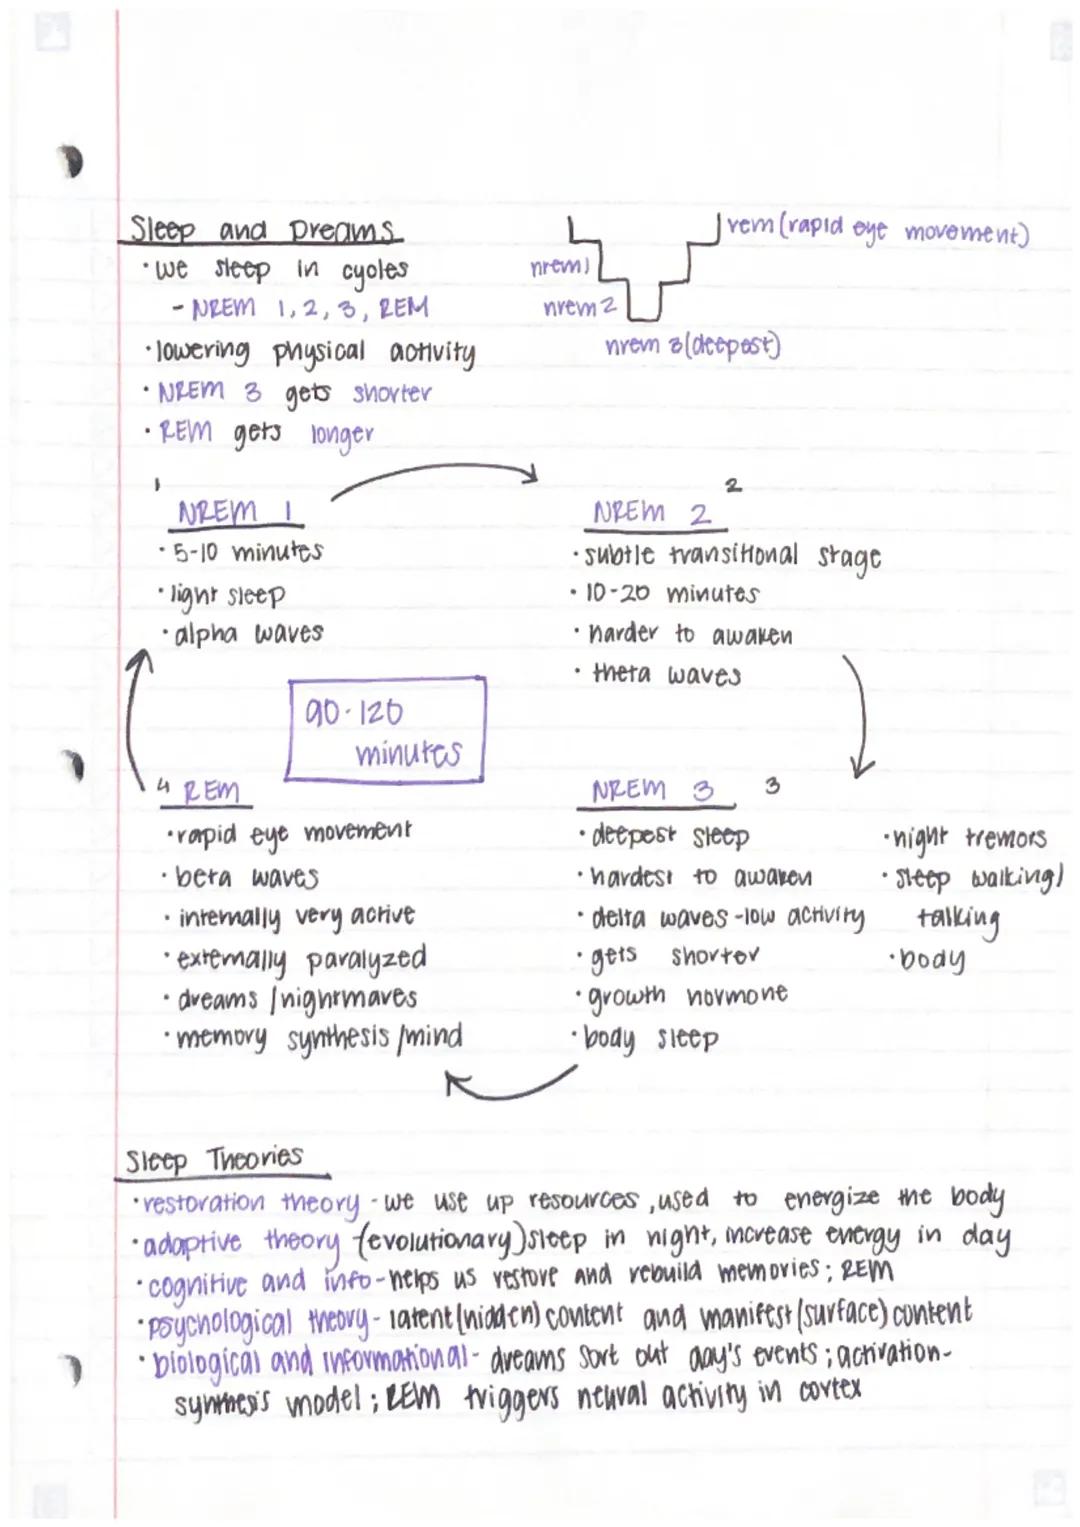 Sleep and Dreams
• we sleep in cycles
- NREM 1, 2, 3, REM
• lowering physical activity
• NREM 3 gets shorter
• REM gets longer
rem (rapid eye movement)
nrem 1
nrem 2
nrem 3 (deepest)
1
NREM 1
• 5-10 minutes
• light sleep
• alpha waves
2
NREM 2
• subtle transitional stage
• 10-20 minutes
• harder to awaken
• theta waves
90-120
minutes
4 REM
• rapid eye movement
• beta waves
• internally very active
• externally paralyzed
• dreams / nightmares
• memory synthesis / mind
NREM 3 3
• deepest sleep
• hardest to awaken
• delta waves - low activity
• gets shorter
• growth hormone
• body sleep
• night tremors
• sleep walking/
talking
• body
Sleep Theories
• restoration theory - we use up resources, used to energize the body
• adaptive theory - (evolutionary) sleep in night, increase energy in day
• cognitive and info - helps us restore and rebuild memories; REM
• psychological theory - latent (hidden) content and manifest (surface) content
• biological and informational - dreams sort out day's events; activation-
synthesis model; REM triggers neural activity in cortex